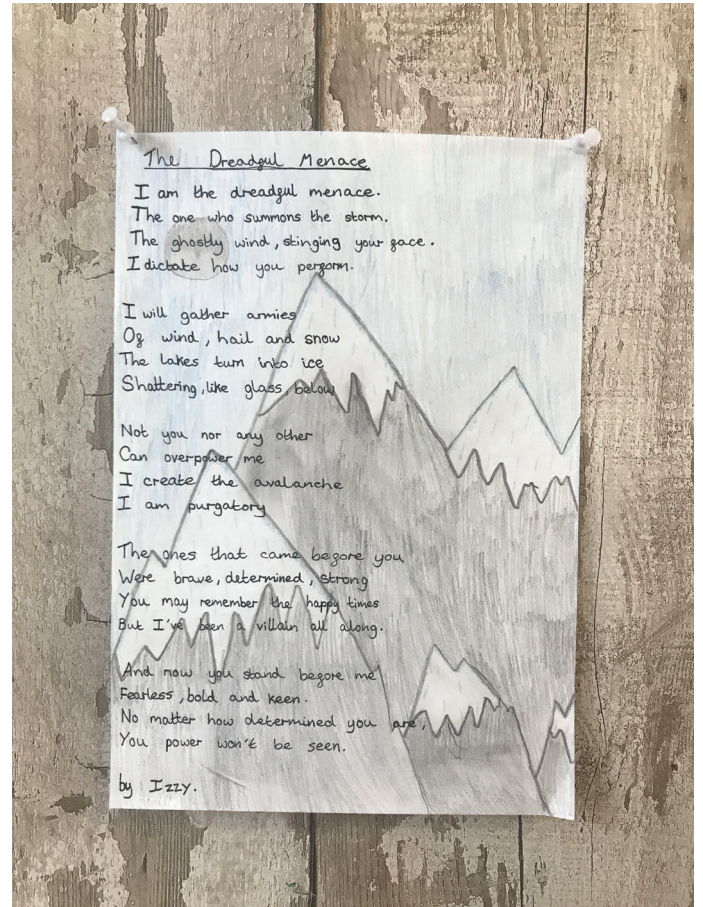 The Dreadful Menace
I am the dreadful menace.
The one who summons the storm.
The ghostly wind, stinging your face.
I dictate how you perform.
I will gather armies
Of wind, hail and snow
The lakes turn into ice
Shattering, like glass, below
Not you nor any other
Can overpower me
I create the avalanche
I am purgatory
The ones that came before you
Were brave, determined, strong
You may remember the happy times
But I've been a villain all along.
And now you stand before me
Fearless, bold and keen.
No matter how determined you are,
You power won't be seen.
by Izzy.